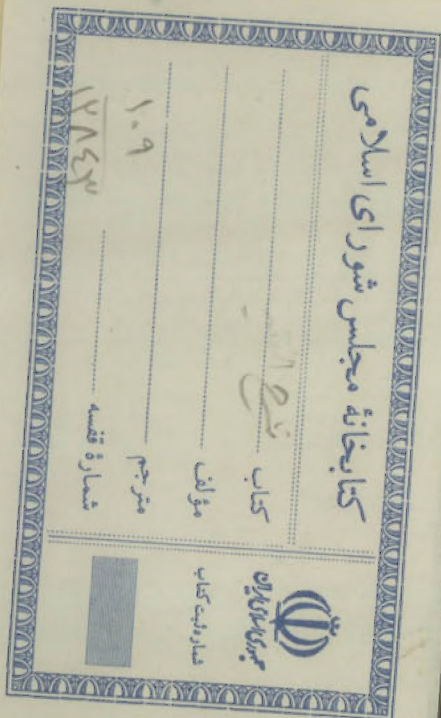 کتابخانهٔ مجلس شورای اسلامی
کتاب
مؤلف
مترجم
شمارهٔ قفسه
۱۰۹
۱۲۸۴۳
جمهوری اسلامی ایران
شماره ثبت کتاب